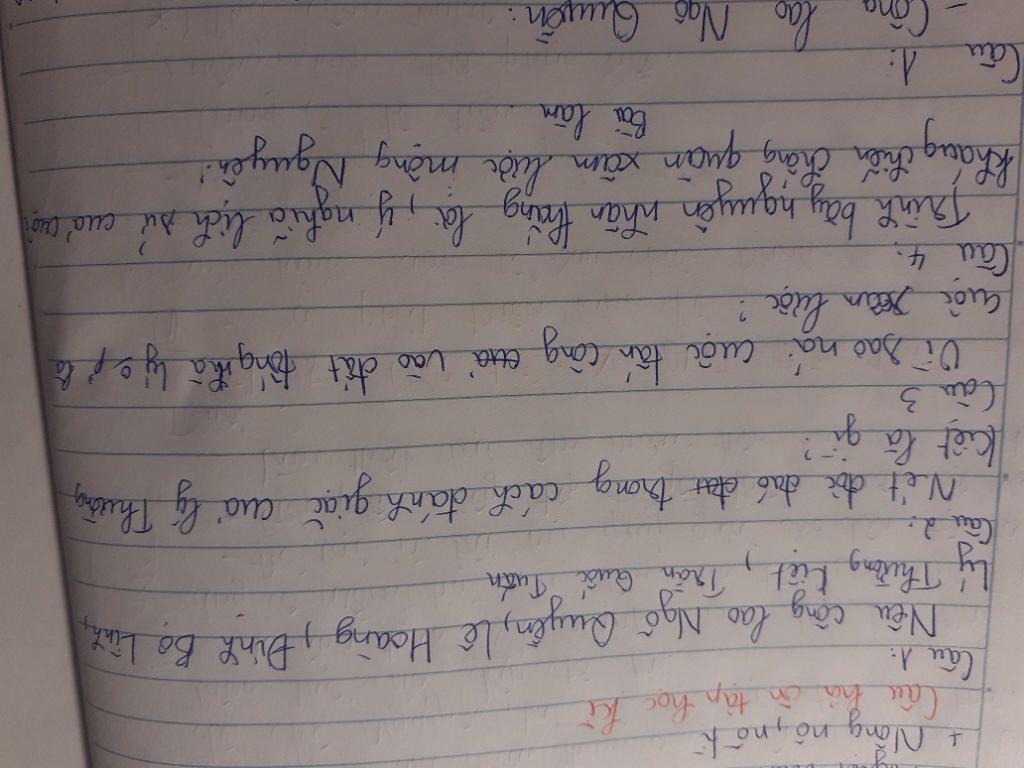 + Nông nô, nô tì
Câu hỏi ôn tập học kì
Câu 1:
Nêu công lao Ngô Quyền, Lê Hoàng, Đinh Bộ Lĩnh,
Lý Thường Kiệt, Trần Quốc Tuấn
Câu 2:
Nét độc đáo trong cách đánh giặc của Lý Thường
Kiệt là gì?
Câu 3
Vì sao nói cuộc tấn công vào đất Tống nhà Lý là
cuộc xâm lược?
Câu 4:
Trình bày nguyên nhân thắng lợi, ý nghĩa lịch sử của cuộc
kháng chiến chống quân xâm lược mông Nguyên?
Bài làm
Câu 1:
- Công lao Ngô Quyền: